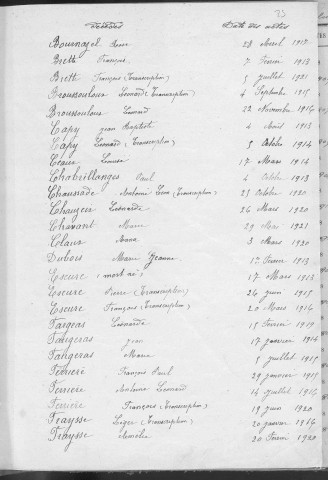 23
Décédés Date des actes
Bournazel Anne 28 Avril 1913
Brett François 7 Février 1913
Brett François (Transcription) 5 juillet 1921
Broussouloux Léonarde (Transcription) 4 Septembre 1915
Broussouloux Léonard 22 Novembre 1916
Capy jean Baptiste 4 Août 1913
Capy Léonard (Transcription) 5 Octobre 1914
Ceaux Louise 17 Mars 1914
Chabrillanges Paul 4 Octobre 1913
Chaussade Antoine Léon (Transcription) 25 Octobre 1920
Chauzeix Léonarde 26 Mars 1920
Chavant Marie 29 Mai 1921
Claux Maria 3 Mars 1920
Dubois Marie Jeanne 17 Février 1913
Escure (mort né) 17 Mars 1913
Escure Pierre (Transcription) 26 juin 1915
Escure François (Transcription) 20 Mars 1916
Fargeas Léonarde 15 Février 1919
Faugeras jean 17 janvier 1914
Faugeras Marie 5 juillet 1915
Ferrière François Paul 29 janvier 1915
Ferrière Antoine Léonard 14 juillet 1916
Ferrière François (Transcription) 19 juin 1920
Fraysse Léger (Transcription) 20 janvier 1916
Fraysse Amélie 20 Février 1920